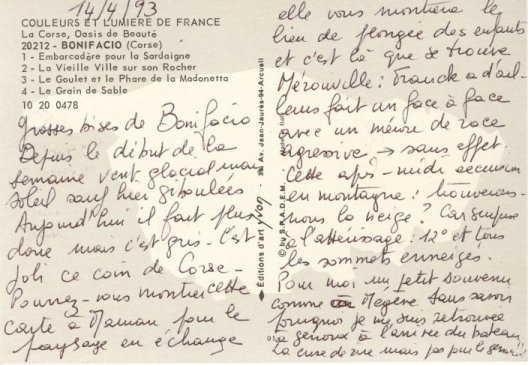 14/4/93
COULEURS ET LUMIERE DE FRANCE
La Corse, Oasis de Beauté
20212 - BONIFACIO (Corse)
1 - Embarcadère pour la Sardaigne
2 - La Vieille Ville sur son Rocher
3 - Le Goulet et le Phare de la Madonetta
4 - Le Grain de Sable
10 20 0478
Grosses bises de Bonifacio
Depuis le début de la
semaine vent glacial mais
soleil sauf hier giboulées
Aujourd'hui il fait plus
doux mais c'est gris - c'est
joli ce coin de Corse -
Pouvez-vous montrer cette
carte à Maman pour le
paysage en échange
Éditions d'art yvon
Av. Jean-Jaurès-94-Arcueil
by S.P.A.D.E.M.
elle vous montrera le
lieu de plongée des enfants
et c'est là que se trouve
Mérouville : Franck a d'ail-
leurs fait un face à face
avec un mérou de race
agressive → sans effet
Cette après-midi excursion
en montagne : trouverons-
nous la neige ? Car surprise
à l'atterrissage : 12° et tous
les sommets enneigés.
Pour moi un petit souvenir
comme Megève sans savoir
pourquoi je me suis retrouvée
à genoux à l'arrivée du bateau
La cure de rire mais pas pour le genou !!